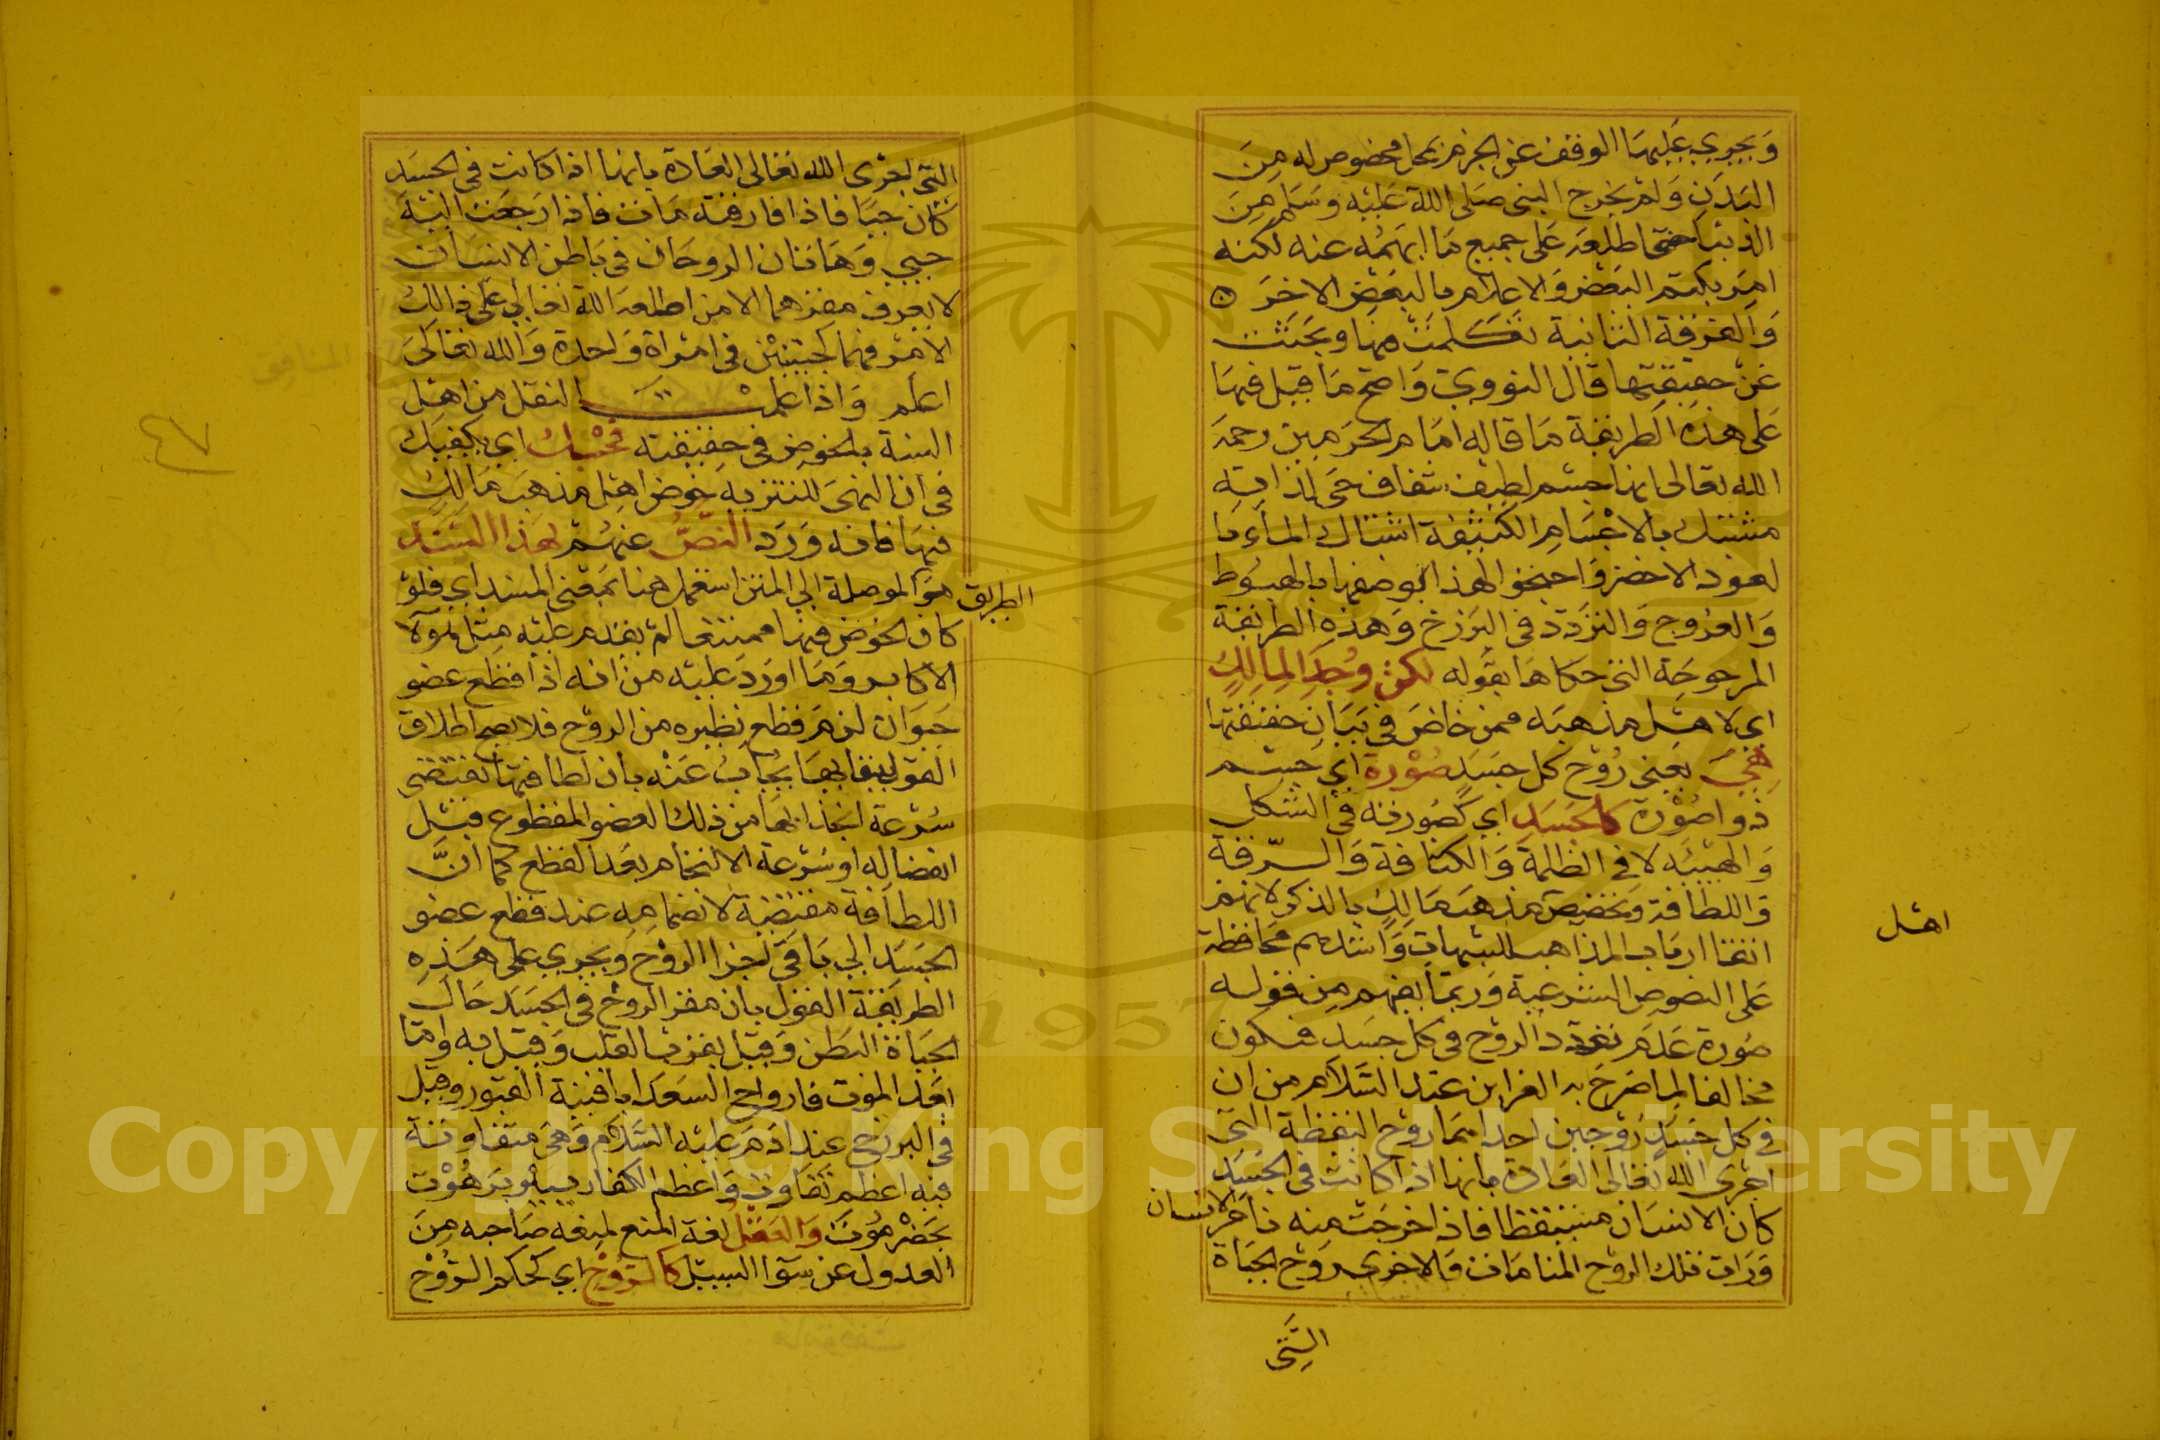 ويجري عليها الوقف عن الجزم بمحل مخصوص له من
البدن ولم يخرج النبي صلى الله عليه وسلم من
الدنيا حتى اطلعه على جميع ما ابهمه عنه لكنه
امر بكتم البعض والاعلام بالبعض الاخر
والفرقة الثانية تكلمت فيها وبحثت
عن حقيقتها قال النووي واصح ما قيل فيها
على هذه الطريقة ما قاله امام الحرمين رحمه
الله تعالى انها جسم لطيف شفاف حي لذاته
مشتبك بالاجسام الكثيفة اشتباك الماء با
لعود الاخضر واحتجوا لهذا بوصفها بالهبوط
والعروج والتردد في البرزخ وهذه الطريقة
المرجوحة التي حكاها بقوله لكن وجد لمالك
اي لاهل مذهبه ممن خاض في بيان حقيقتها
هي يعني روح كل جسد صورة اي جسم
ذو اصورة كالجسد اي كصورته في الشكل
والهيئة لا في الظلمة والكثافة والرقة
واللطافة وتخصيص مذهب مالك بالذكر لانهم
اتقا ارباب المذاهب للشبهات واشدهم محافظة
اهل
على النصوص الشرعية وربما يفهم من قوله
صورة عدم تعدد الروح في كل جسد فيكون
مخالفا لما صرح به العز ابن عبد السلام من ان
في كل جسد روحين احداهما روح اليقظة التي
اجرى الله تعالى العادة بانها اذا كانت في الجسد
كان الانسان مستيقظا فاذا خرجت منه نام الانسان
ورات تلك الروح المنامات والاخرى روح الحياة
التي
التي اجرى الله تعالى العادة بانها اذا كانت في الجسد
كان حيا فاذا فارقته مات فاذا رجعت اليه
حيي وهاتان الروحان في باطن الانسان
لا يعرف مقرهما الا من اطلعه الله تعالى على ذلك
الامر فهما كجنينين في امراة واحدة والله تعالى
اعلم واذا علمت النقل من اهل
السنة بالخوض في حقيقته فحسبك اي يكفيك
في ان النهي للتنزيه خوض اهل مذهب مالك
فيها فانه ورد النص عنهم بهذا السند
الطريق هو الموصلة الى المتن استعمل هنا بمعنى المسند اي فلو
كان الخوض فيها ممتنعا لم يقدم عليه مثل هولا
الاكابر وما اورد عليه من انه اذا قطع عضو
حيوان لزم قطع نظيره من الروح فلا يصح اطلاق
القول ببقايها يجاب عنه بان لطافتها تقتضي
سرعة انجذابها من ذلك العضو المقطوع قبل
انفصاله او سرعة الالتحام بعد القطع كما ان
اللطافة مقتضية لانضمامه عند قطع عضو
الجسد الى باقي اجزا الروح ويجري على هذه
الطريقة القول بان مقر الروح في الجسد حال
الحياة البطن وقيل بقرب القلب وقيل به واما
بعد الموت فارواح السعدا بافنية القبور وقيل
في البرزخ عند ادم عليه السلام وهي متفاوتة
فيه اعظم تفاوت واعظم الكفار ببير برهوت
بحضرموت والعقل لغة المنع لمنعه صاحبه من
العدول عن سوا السبيل كالروح اي كحكم الروح
٤٧
Copyright © King Saud University
1957